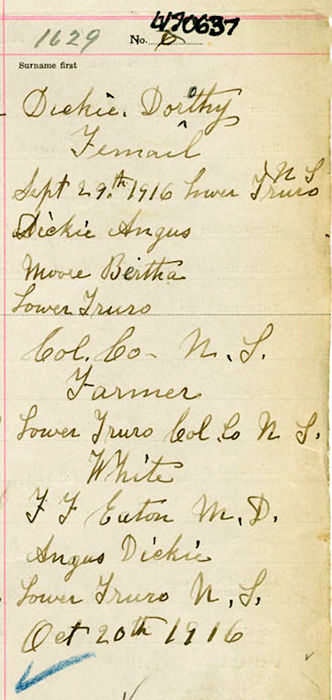 470637
1629 No. 6
Surname first
Dickie. Dorothy
Femail
Sept 29th 1916 Lower Truro N S
Dickie Angus
Moore Bertha
Lower Truro
Col. Co- N. S.
Farmer
Lower Truro Col. Co N S.
White
F F Eaton M. D.
Angus Dickie
Lower Truro N. S.
Oct 20th 1916